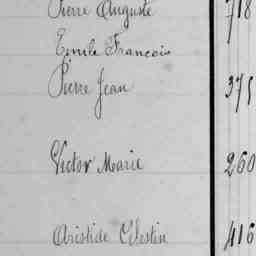 Pierre Auguste 718
Emile François
Pierre Jean 375
Victor Marie 260
Aristide Célestin 416